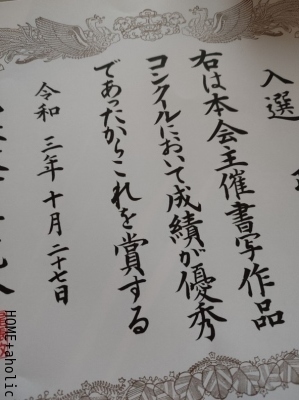 入選
右は本会主催書写作品
コンクールにおいて成績が優秀
であったからこれを賞する
令和三年十月二十七日
HOME+aholic